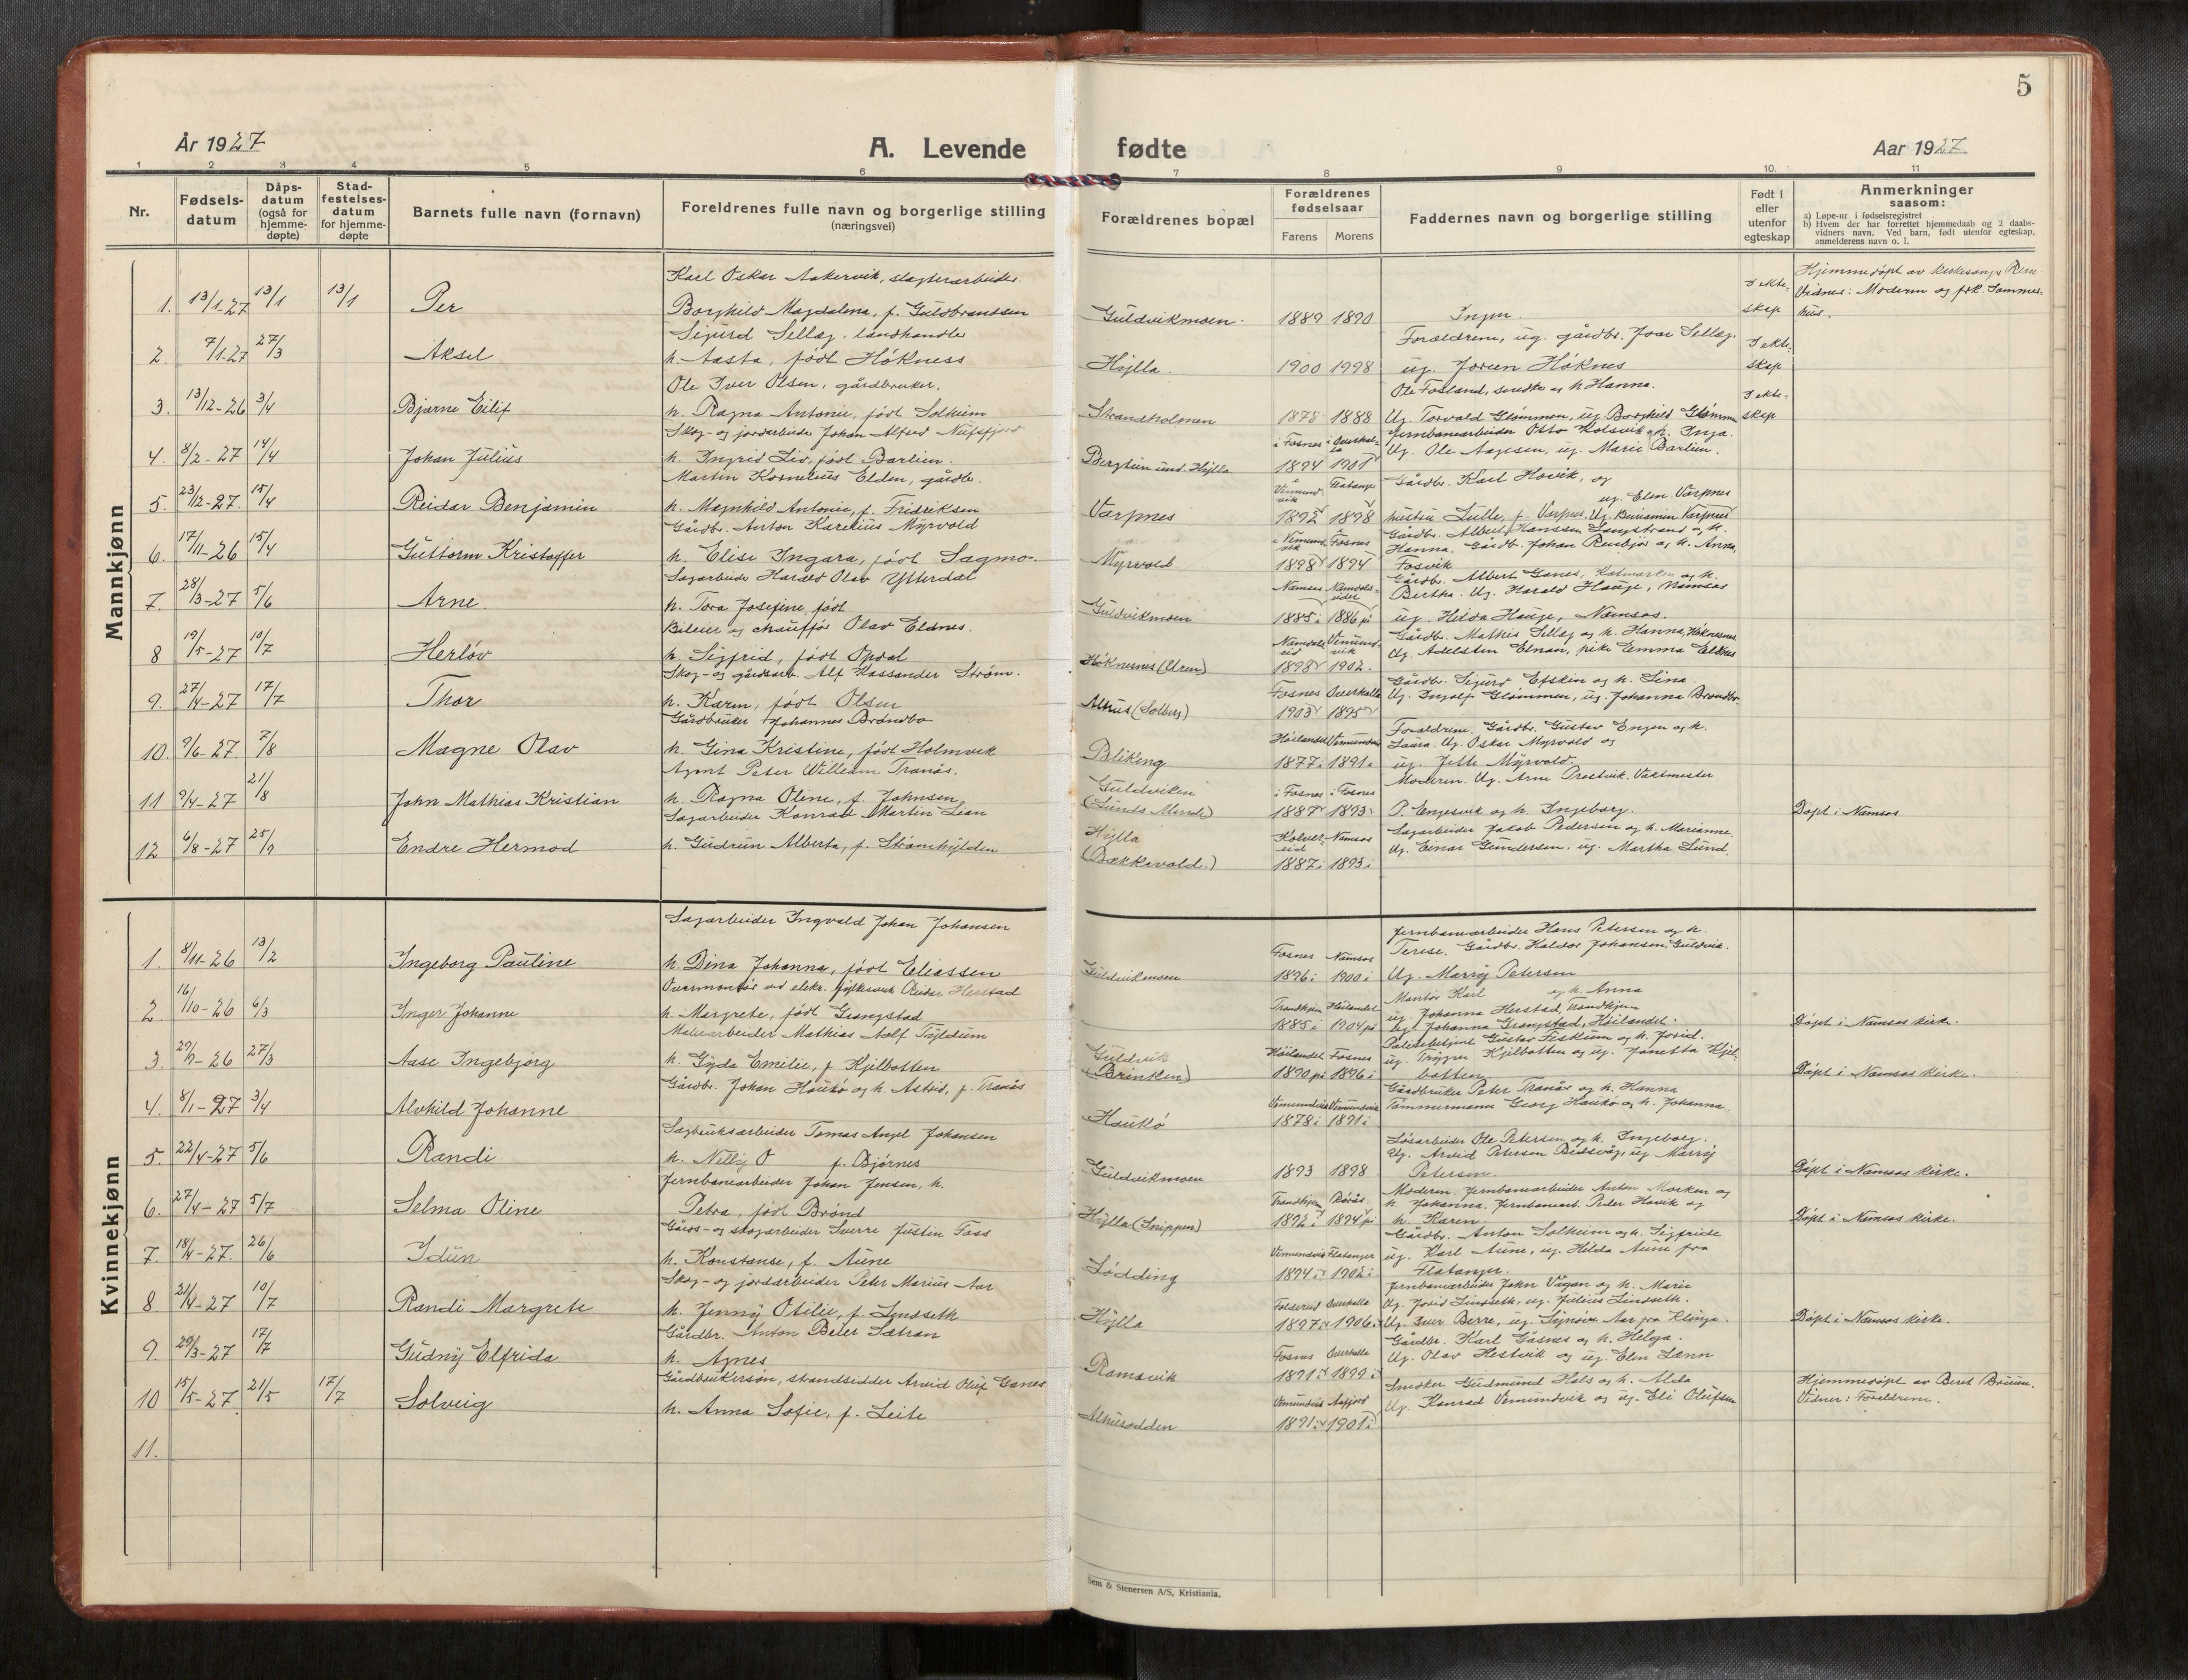 5
År 1927
A. Levende
fødte
Aar 1927
1 2 3 4 5 6 7 8 9 10 11
Nr.
Fødsels-
datum
Dåps-
datum
(også for
hjemme-
døpte)
Stad-
festelses-
datum
for hjemme-
døpte
Barnets fulle navn (fornavn)
Foreldrenes fulle navn og borgerlige stilling
(næringsvei)
Forældrenes bopæl
Forældrenes
fødselsaar
Farens Morens
Faddernes navn og borgerlige stilling
Født i
eller
utenfor
egteskap
Anmerkninger
saasom:
a) Løpe-nr i fødselsregistret
b) Hvem der har forrettet hjemmedaab og 2 daabs-
vidners navn. Ved barn, født utenfor egteskap,
anmelderens navn o. l.
Mannkjønn
1. 13/1-27 13/1 13/1 Per
Karl Oskar Aakervik, slagterarbeider
Borghild Magdalena, f. Guldbrandsen
Guldvikmoen. 1889 1890 Ingen.
I ekte-
skap
Hjemmedøpt av kirkesanger
Vidner: Moderen og frk. Sommer-
2. 7/1-27 27/3 Aksel
Sigurd Sellæg, landhandler
h. Aasta, født Høkness
Hylla. 1900 1998
Forældrene, ug. gårdbr. Joar Sellæg.
ug. Joreen Høknes
I ekte-
skap
3. 13/12-26 3/4 Bjarne Eilif
Ole Iver Olsen, gårdbruker.
h. Ragna Antonie, født Solheim
Strandholmen 1878 1888
Ole Fosland, smed og h. Hanna.
Ug. Torvald Glømmen, ug. Borghild Glømmen
I ekte-
skap
4. 8/2-27 14/4 Johan Julius
Skog- og jordarbeider Johan Alfred Nufsfjord
h. Ingrid Liv, født Barlien.
Bergtun und. Hylla
i Fosnes i Overhal-
la
1894 1901
Jernbanearbeider Otto Kolsvik og h. Inga.
Ug. Ole Aagesen, ug. Marie Barlien.
5. 23/12-27. 15/4 Reidar Benjamin
Martin Kornelius Elden, gårdbr.
h. Magnhild Antonie, f. Fridriksen
Varpnes
Vemund-
vik
Flatanger
1892 1898
Gårdbr. Karl Hovik, og
ug. Elen Varpnes
hustru Lulle, f. Varpnes. Ug. Benjamin Varpnes
6. 17/11-26 15/4 Guttorm Kristoffer
Gårdbr. Anton Karelius Myrvold
h. Elise Ingara, født Sagmo.
Myrvold
i Vemund-
vik
Fosnes
1898 1894
Gårdbr. Albert Hanssen Langstrand og h.
Hanna. Gårdb. Johan Reinbjør og h. Anna,
Fosvik
7. 28/3-27 5/6 Arne.
Sagarbeider Harald Olav Ytterdal
h. Tora Josefine, født
Guldvikmoen
Namsos Namdals-
eidet
1885 i 1886 på
Gårdbr. Albert Ganes, Katmarken og h.
Bertha. Ug. Harald Hauge, Namsos
ug. Helda Hauge, Namsos.
8 19/5-27 10/7 Herløv
Bileier og chauffør Olav Eldnes.
h. Sigfrid, født Opdal
Høknesnes (Uren)
Namdals-
eid
Vemund-
vik
1898 1902.
Gårdbr. Mathis Sellæg og h. Hanna, Høknesnes
Ug. Adelsten Elnan, pike Emma Eldnes
9. 27/4-27 17/7 Thor
Skog- og gårdsarb. Alf Kassander Strøm.
h. Karen, født Olsen
Alhus (Solberg)
Fosnes Overhalla
1903 1895
Gårdbr. Sigurd Efskin og h. Lina.
Ug. Ingolf Glømmen, ug. Johanna Brøndbo.
10. 9/6-27. 7/8 Magne Olav
Gårdbruker Johannes Brøndbo
h. Gina Kristine, født Holmvik
Bliking
Høilandet Vemundvik
1877 i 1891 i
Foreldrene. Gårdbr. Gustav Engen og h.
Laura. Ug. Oskar Myrvold og
ug. Jette Myrvold.
11 9/4-27 21/8 John Mathias Kristian
Agent Peter William Tranås.
h. Ragna Oline, f. Johnsen
Guldviken
(Lunds Minde)
i Fosnes i Fosnes
1887 1893
Moderen. Ug. Arne Prestvik. Vaktmester
P. Engesvik og h. Ingeborg.
Døpt i Namsos
12 6/8-27 25/9 Endre Hermod
Sagarbeider Konrad Martin Lian
h. Gudrun Alberta, f. Strømhylden
Hylla
(Bakkevold.)
Kolver-
eid
Namsos
1887 i 1893 i
Sagarbeider Jakob Pedersen og h. Marianne.
Ug. Einar Gundersen, ug. Martha Lund.
Kvinnekjønn
1. 8/11-26 13/2 Ingeborg Pauline
Sagarbeider Ingvald Johan Johansen
h. Dina Johanna, født Eliassen
Guldvikmoen
Fosnes Namsos
1896 i 1900 i
Jernbanearbeider Hans Petersen og h.
Terese. Gårdbr. Haldor Johansen, Guldvik.
Ug. Marry Petersen
2 16/10-26 6/3 Inger Johanne
Overmontør ved elekr. Reidar Herstad
h. Margrete, født Grongstad
Trondhjem Høilandet
1885 i 1904 på
Montør Karl og h. Anna
ug. Johanna Herstad, Trondhjem
ug. Johanna Grongstad, Høilandet.
Døpt i Namsos kirke.
3. 29/9-26 27/3 Aase Ingebjørg
Malerarbeider Mathias Adolf Tyldum
h. Gyda Emelie, f. Kjelbotten
Guldvik
(Brinken)
Høilandet Fosnes
1890 på 1896 i
Politibetjent Gustav Fiskum og h. Jorid.
ug. Trygve Kjelbotten og ug. Janetta Kjel-
botten
Døpt i Namsos kirke.
4. 8/1-27 3/4 Alvhild Johanne
Gårdbr. Johan Haukø og h. Astrid, f. Tranås
Haukø
Vemundvik Vemundvik
1878 i 1891 i
Gårdbruker Peter Tranås og h. Hanna
Tømmermann Georg Haukø og h. Johanna.
5. 22/4-27 5/6 Randi
Sagbruksarbeider Tomas Angel Johansen
h. Nelly O f. Bjørnes
Guldvikmoen 1893 1898
Løsarbeider Ole Petersen og h. Ingeborg.
Ug. Arvid Petersen Beidsvåg, ug. Marry
Petersen.
Døpt i Namsos kirke.
6. 27/4-27 5/7 Selma Oline
Jernbanearbeider Johan Jensen, h.
Petra, født Brønd
Hylla (Snippen)
Trondhjem Børås
1892 i 1894 på
Moderen. Jernbanearbeider Anton Morken og
h. Johanna. Jernbanearb. Peder Hovik og
h. Karen.
Døpt i Namsos kirke.
7. 18/4-27. 26/6 Idun
Gårds- og skogarbeider Sverre Justin Foss
h. Konstanse, f. Aune
Lødding
Vemundvik Flatanger
1894 i 1902 i
Gårdbr. Anton Solheim og h. Sigfride
ug. Karl Aune, ug. Hilda Aune fra
Flatanger.
8. 21/4-27 10/7 Randi Margrete
Skog- og jordarbeider Peter Marius Aar
h. Jenny Otilie, f. Lindseth
Hylla
Foldereid Overhalla
1897 1906
Jernbanearbeider John Vågan og h. Marie
Ug. Jorid Lindseth, ug. Julius Lindseth.
Ug. Iver Berre, ug. Synnøve Aar fra Klinga.
Døpt i Namsos kirke.
9. 29/3-27 17/7 Gudny Elfrida
Gårdbr. Anton Beier Sætran
h. Agnes
Ramsvik
Fosnes Overhalla
1891 1899
Gårdbr. Karl Gåsnes og h. Helga.
Ug. Olav Hestvik og ug. Elen Lænn
10 15/5-27. 21/5 17/7 Solveig
Gårdbrukersøn, strandsidder Arvid Oluf Ganes
h. Anna Sofie, f. Leite
Alhusodden
Vemundvik Aafjord
1891 1901
Smedker Gudmund Hals og h. Alda
Ug. Konrad Vemundvik og ug. Eli Olufsen
Hjemmedøpt av Beret Bruun.
Vidner: Foreldrene.
11.
Sem & Stenersen A/S, Kristiania.